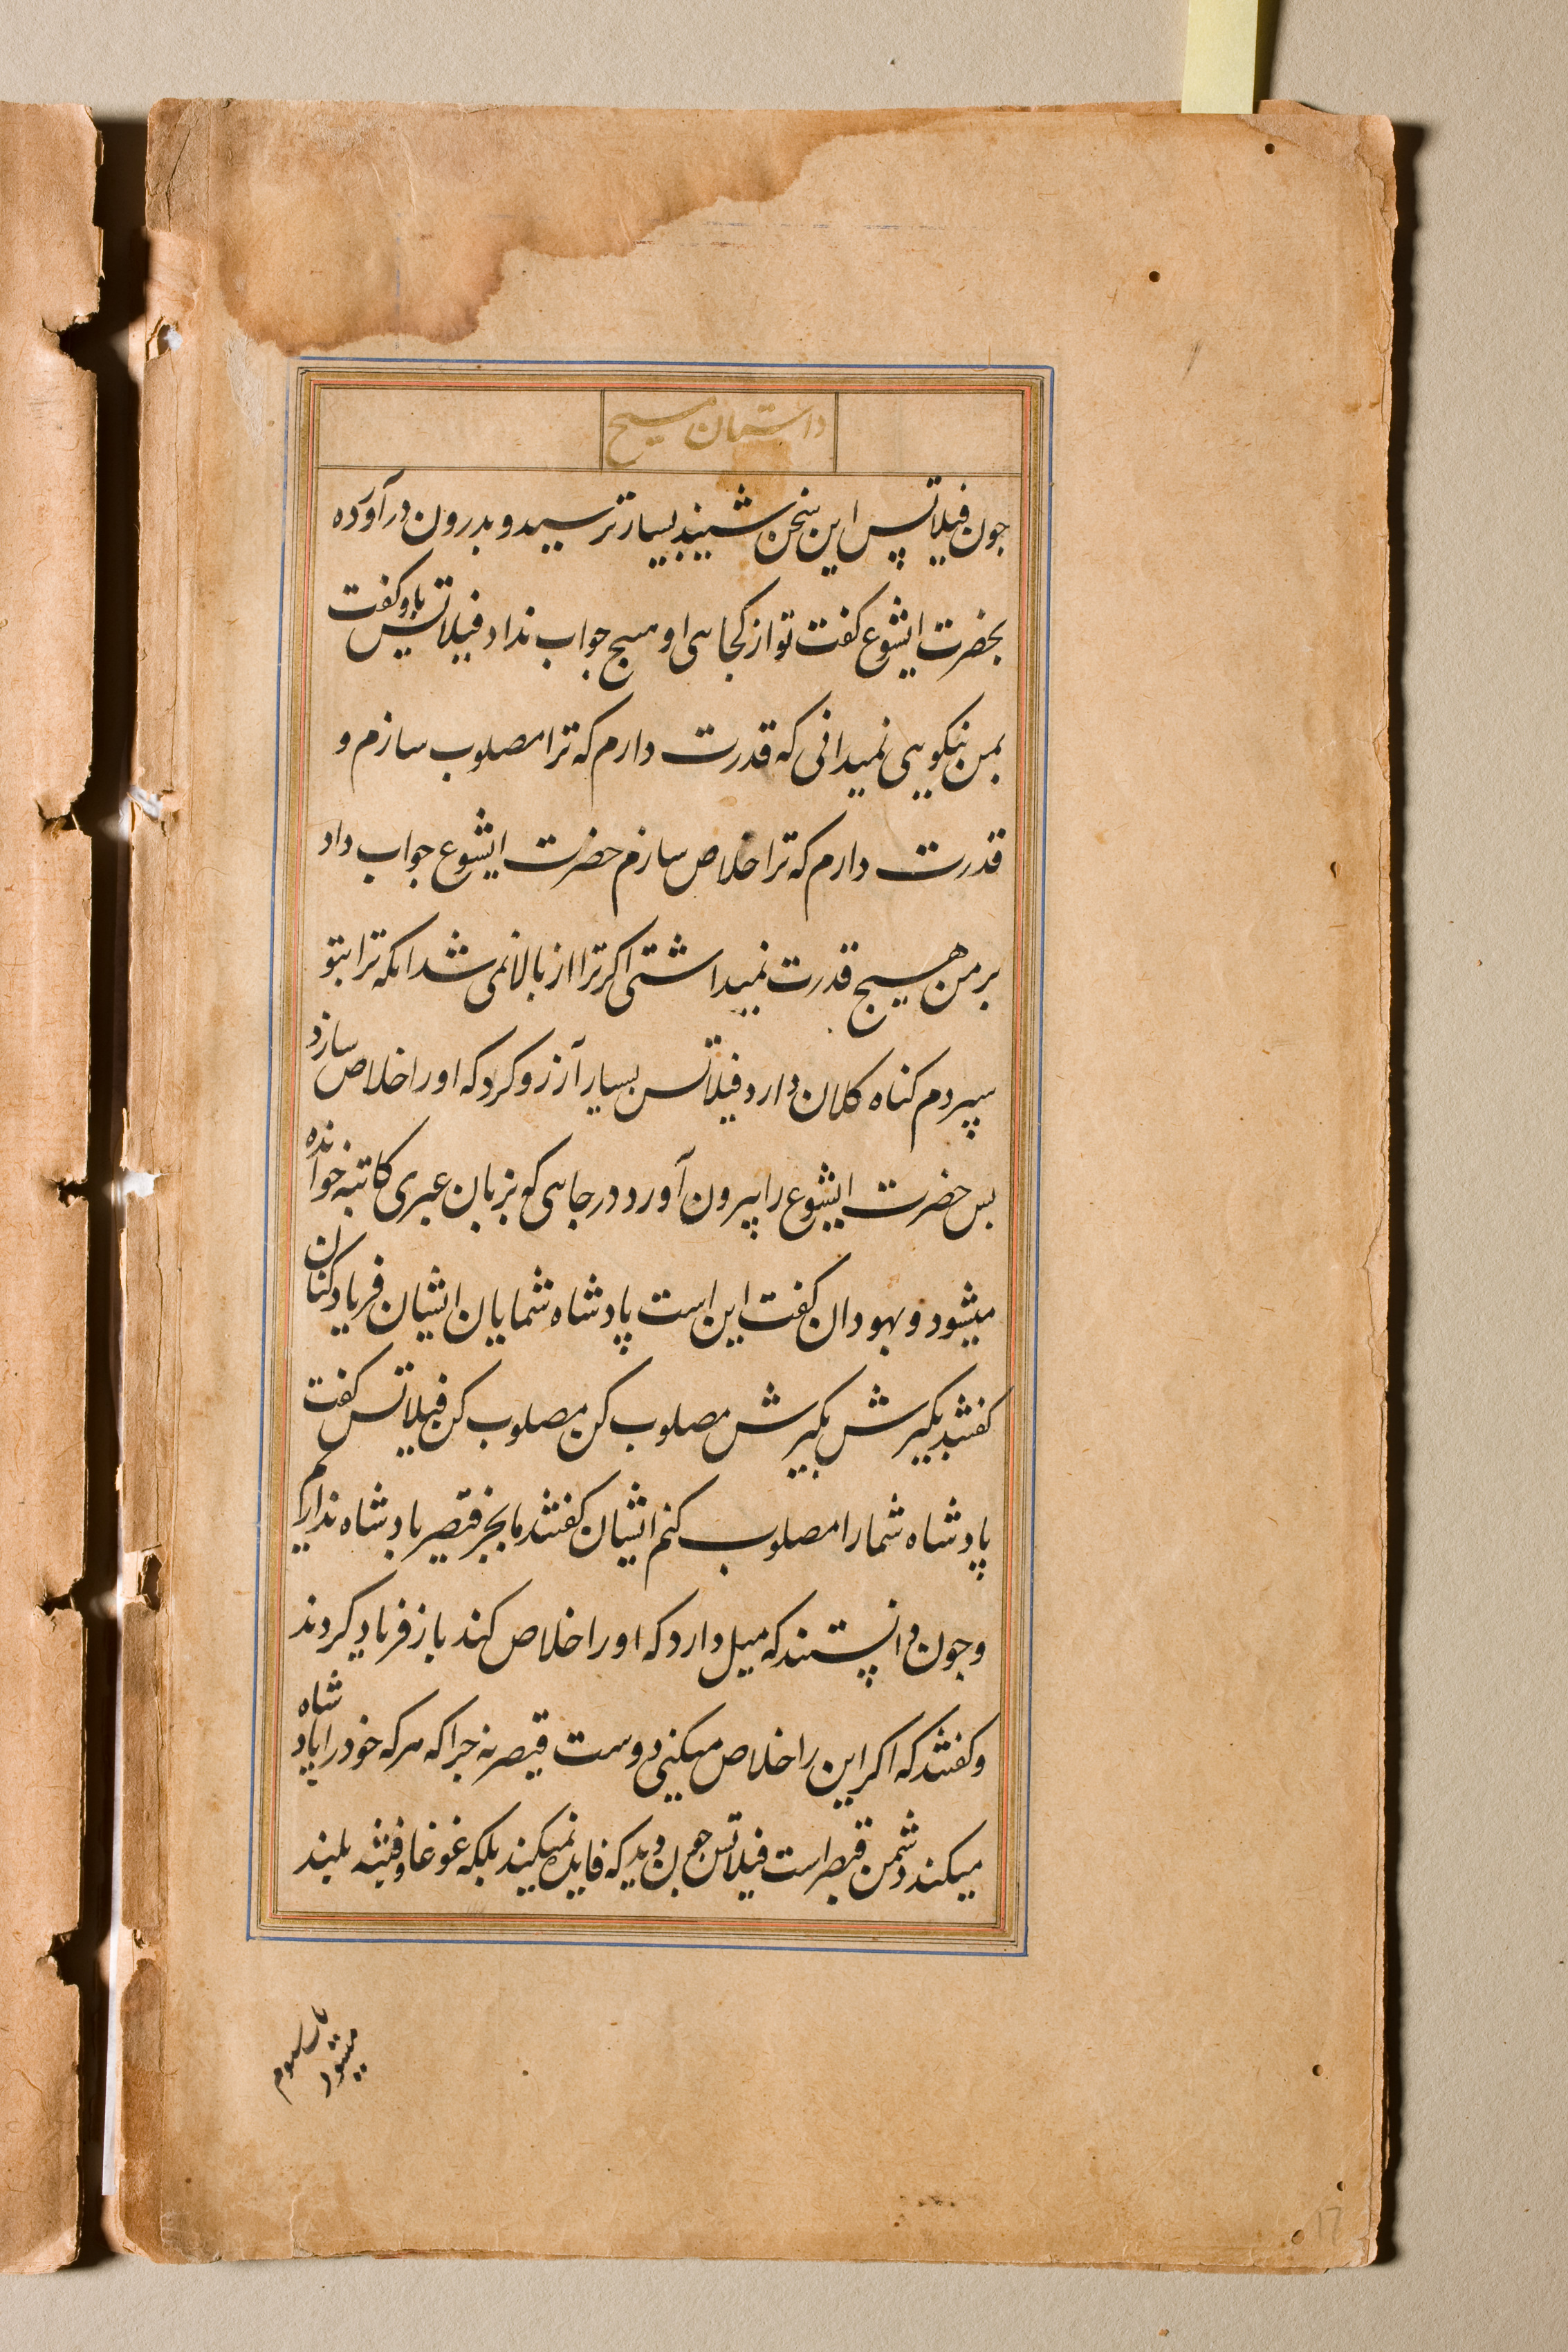 داستان مسیح
جون فیلاتس این سخن شنید بسیار ترسید و بدرون درآورده
بحضرت ایشوع کفت تو از کجایی او هیج جواب نداد فیلاتس باو کفت
بمن نیکویی نمیدانی که قدرت دارم که ترا مصلوب سازم و
قدرت دارم که ترا خلاص سازم حضرت ایشوع جواب داد
بر من هیسج قدرت نمیداشتی اکر ترا از بالا نمی شد انکه ترا بتو
سپردم کناه کلان دارد فیلاتس بسیار آرزو کرد که او را خلاص سازد
بس حضرت ایشوع را بیرون آورد در جایی که بزبان عبری کاتبه خوانده
میشود و یهودان کفت این است پادشاه شمایان ایشان فریاد کنان
کفتند بکیرش بکیرش مصلوب کن مصلوب کن فیلاتس کفت
پادشاه شما را مصلوب کنم ایشان کفتند ما بجز قیصر بادشاه نداریم
و جون دانستند که میل دارد که او را خلاص کند باز فریاد کردند
و کفتند که اکر این را خلاص میکنی دوست قیصر نه جرا که هر که خود را پادشاه
میکند دشمن قیصر است فیلاتس جون دید که فایده نمیکیند بلکه غوغا و فتنه بلند
میشود
17